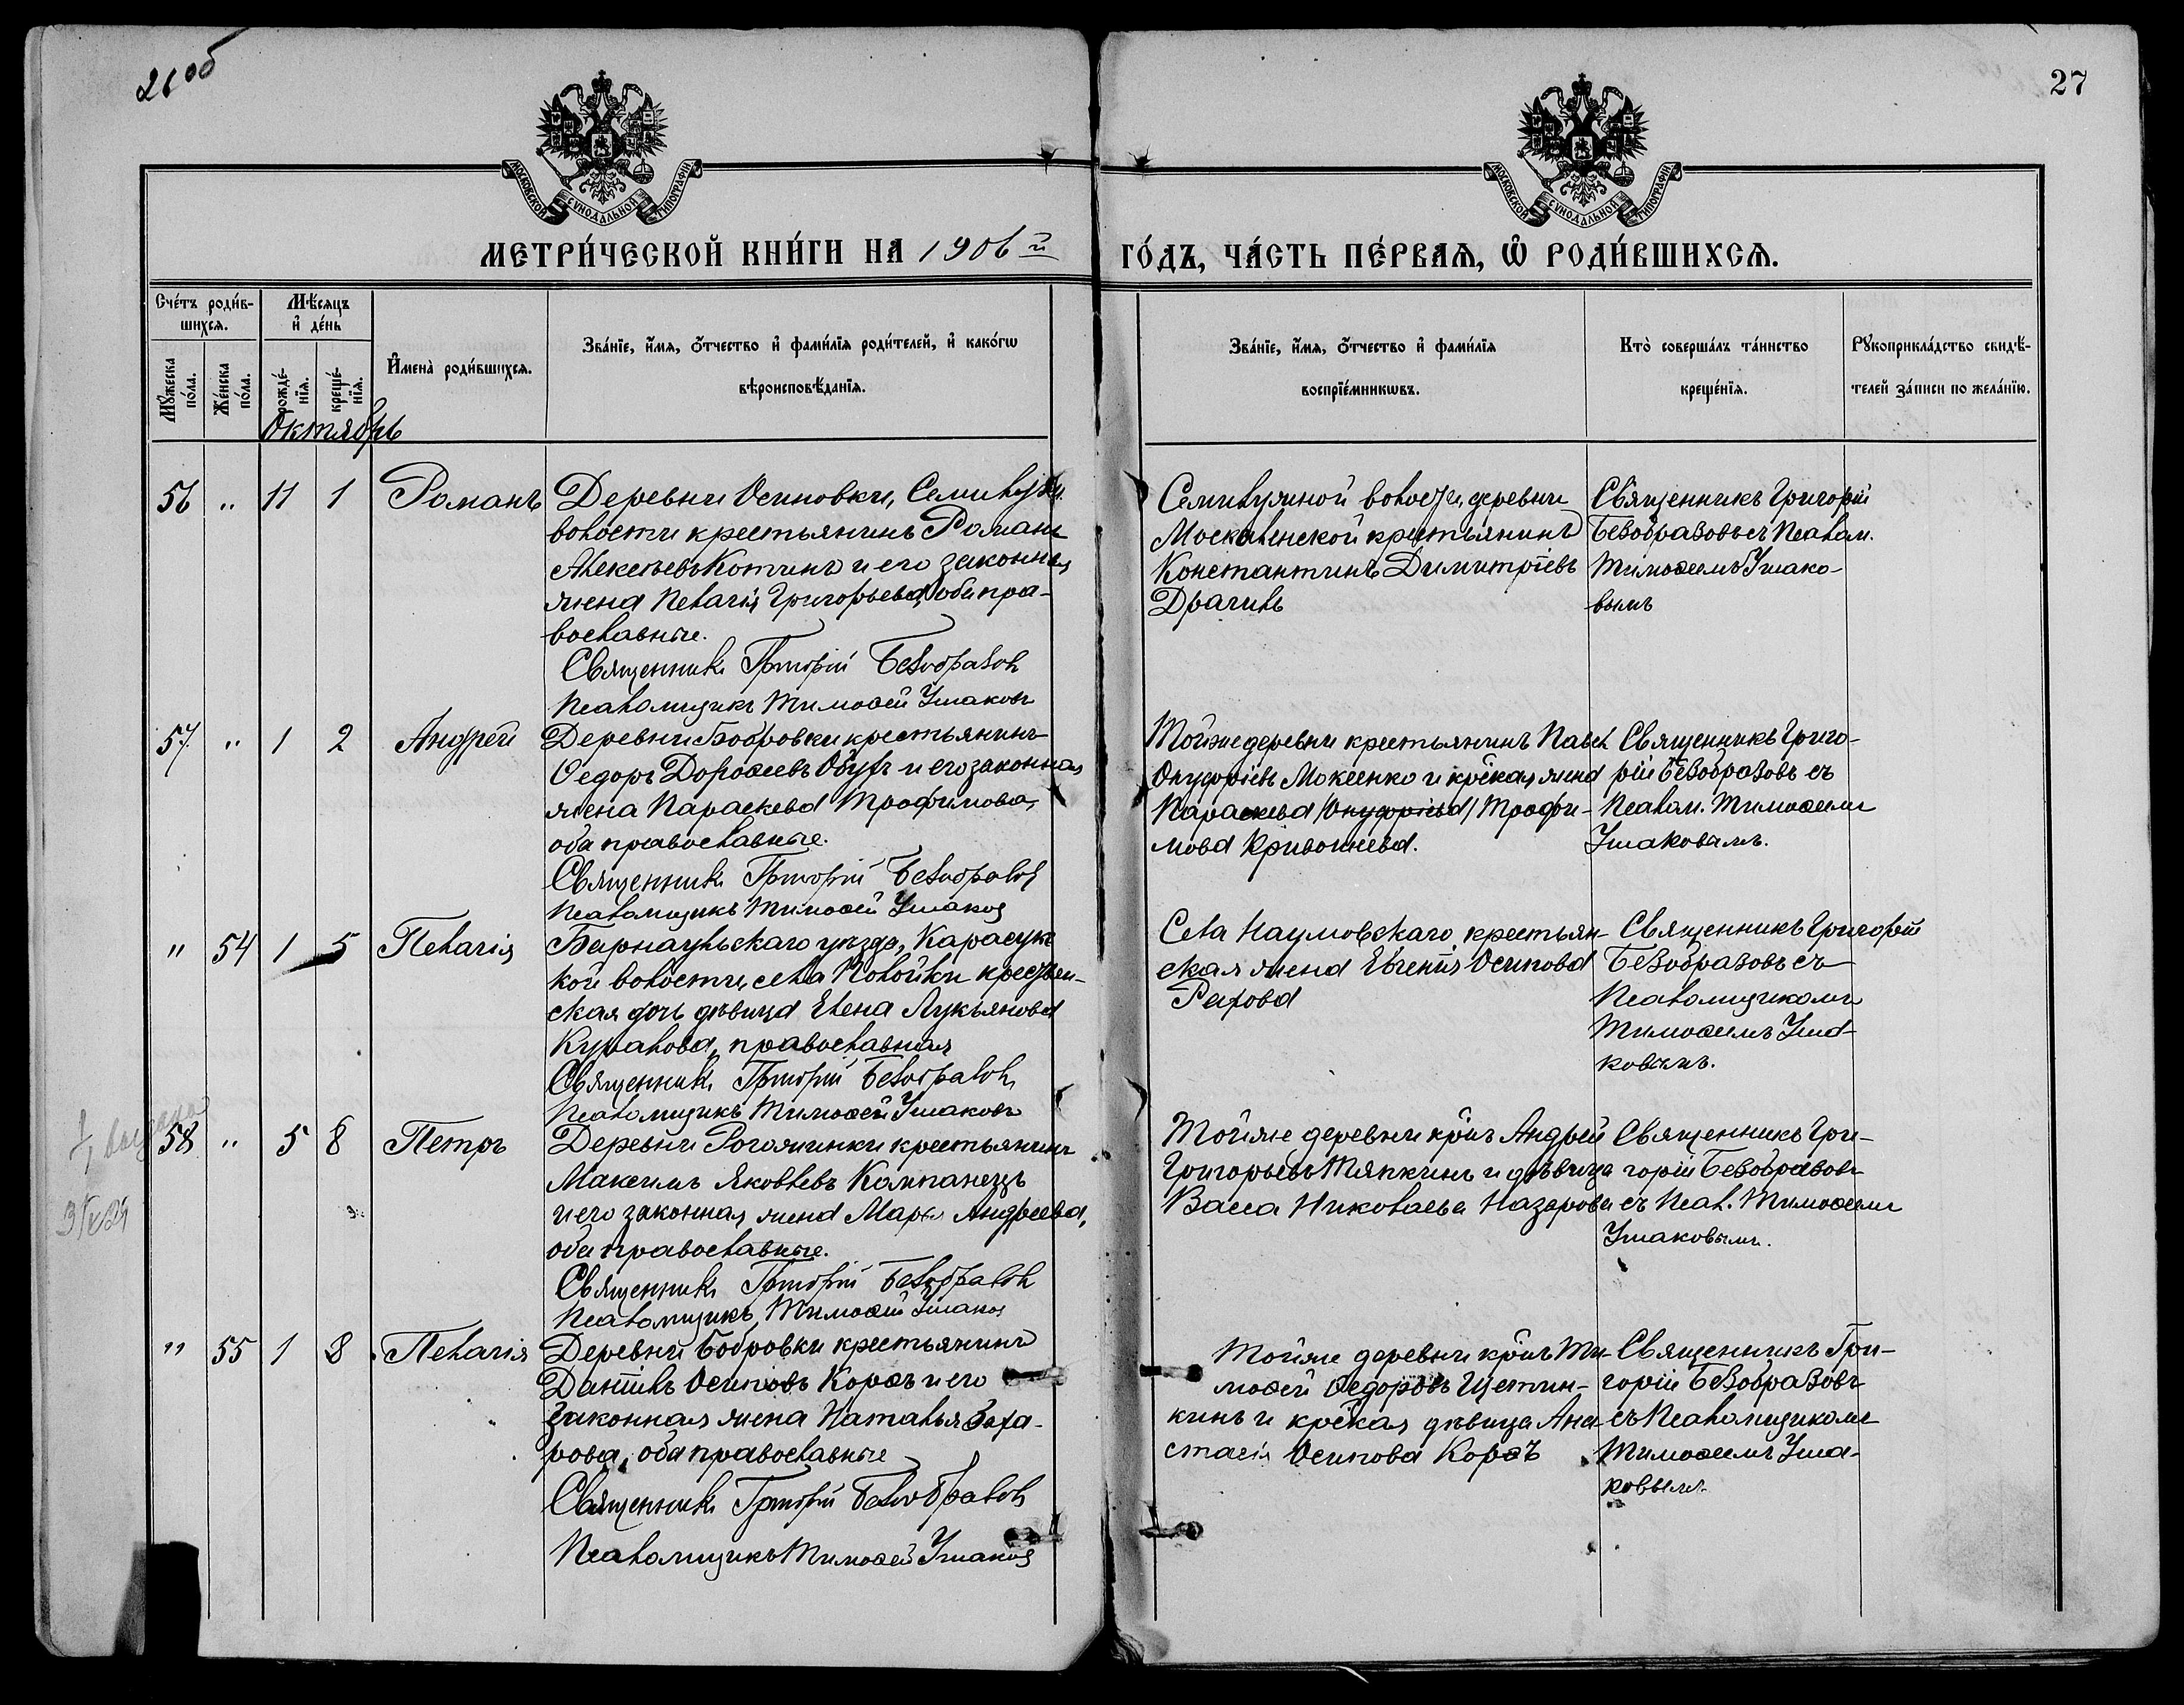 26об
27
МОСКОВСКОЙ СѴНОДАЛЬНОЙ ТИПОГРАФІИ
МОСКОВСКОЙ СѴНОДАЛЬНОЙ ТИПОГРАФІИ
МЕТРИ́ЧЕСКОЙ КНИ́ГИ НА 1906й ГО́ДЪ, ЧА́СТЬ ПЕ́РВАѦ, Ѡ҆ РОДИ́ВШИХСѦ.
Сче́тъ роди́в-
шихсѧ.
Мꙋ́жеска по́ла.
Же́нска по́ла.
Мѣ́сѧцъ
и҆ де́нь
рожде́-
нїѧ.
креще́-
нїѧ.
Октябрь
И҆мена̀ роди́вшихсѧ.
Зва́нїе, и҆́мѧ, ѻ҆́тчество и҆ фами́лїѧ роди́телей, и҆ како́гѡ
вѣроисповѣ́данїѧ.
Зва́нїе, и҆́мѧ, ѻ҆́тчество и҆ фами́лїѧ
воспрїе́мникѡвъ.
Кто̀ соверша́лъ та́инство
креще́нїѧ.
Рꙋкоприкла́дство свидѣ́-
телей за́писи по жела́нїю.
56 " 11 1 Романъ
Деревни Осиновки, Семилуж.
волости крестьянинъ Романъ
Алексѣевъ Котинъ и его законная
жена Пелагія Григорьева, оба пра-
вославные.
Священникъ Григорій Безобразовъ
Псаломщикъ Тимоѳей Ушаковъ
Семилужной волости, деревни
крестьянинъ
Константинъ Димитріевъ
Драчилъ
Священникъ Григорій
Безобразовъ съ псалом.
Тимоѳеемъ Ушако-
вымъ
57 " 1 2 Андрей
Деревни Бобровки крестьянинъ
Ѳедоръ Дороѳеевъ и его законная
жена Параскева Трофимова,
оба православные.
Священникъ Григорій Безобразовъ
Псаломщикъ Тимоѳей Ушаковъ
Той же деревни крестьянинъ Павелъ
Онуфріевъ Мокеенко и крская жена
Параскева /Онуфріева/ Трофи-
мова
Священникъ Григо-
рій Безобразовъ съ
псалом. Тимоѳеемъ
Ушаковымъ.
" 54 1 5 Пелагія
Барнаульскаго уѣзда, Карасук
кой волости, села крестьян-
ская дочь дѣвица Елена Лукьянова
православная
Священникъ Григорій Безобразовъ
Псаломщикъ Тимоѳей Ушаковъ
Села Наумовскаго, крестьян-
ская жена Евгенія Осипова
Рахова
Священникъ Григорій
Безобразовъ съ
псаломщикомъ
Тимоѳеемъ Уша-
ковымъ.
58 " 5 8 Петръ
Деревни Рогожинки крестьянинъ
Максимъ Яковлевъ Компанецъ
и его законная жена Марья Андреева,
оба православные.
Священникъ Григорій Безобразовъ
Псаломщикъ Тимоѳей Ушаковъ
Той же деревни крнъ Андрей
Григорьевъ Тяпкинъ и дѣвица
Васса Николаева Назарова
Священникъ Гри-
горій Безобразовъ
съ псал. Тимоѳеемъ
Ушаковымъ.
" 55 1 8 Пелагія
Деревни Бобровки крестьянинъ
Даніилъ Осиповъ Корѳъ и его
законная жена Наталья Заха-
рова, оба православные
Священникъ Григорій Безобразовъ
Псаломщикъ Тимоѳей Ушаковъ
Той же деревни крнъ Ти-
моѳей Ѳедоровъ Щетин-
кинъ и крская дѣвица Ана-
стасія Осипова Корѳъ
Священникъ Гри-
горій Безобразовъ
съ псаломщикомъ
Тимоѳеемъ Уша-
ковымъ